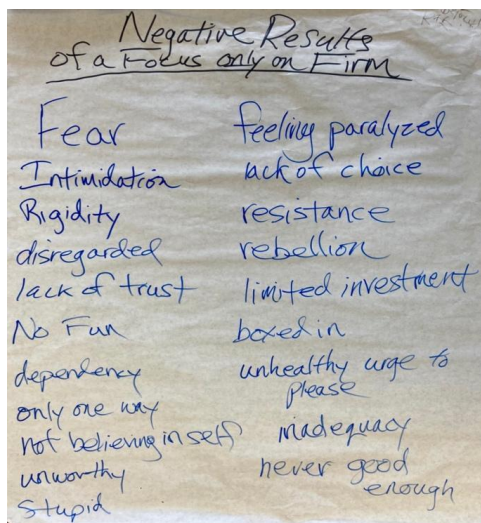 Negative Results
of a Focus only on Firm
Fear
Intimidation
Rigidity
disregarded
lack of trust
No Fun
dependency
only one way
not believing in self
unworthy
stupid
feeling paralyzed
lack of choice
resistance
rebellion
limited investment
boxed in
unhealthy urge to
please
inadequacy
never good
enough